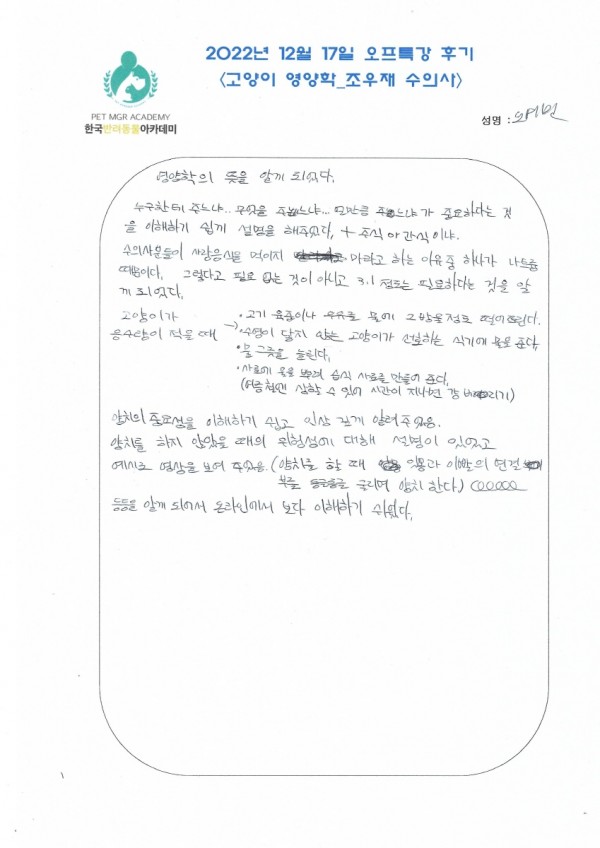 2022년 12월 17일 오프특강 후기
<고양이 영양학_조우재 수의사>
PET MGR ACADEMY
한국반려동물아카데미
성명 :
영양학의 뜻을 알게 되었다.
누구한테 주느냐.. 무엇을 주느냐... 얼만큼 주느냐가 중요하다는 것
을 이해하기 쉽게 설명을 해주었다, + 주식 or 간식이냐.
수의사분들이 사람음식을 먹이지 마라고 하는 이유중 하나가 나트륨
때문이다. 그렇다고 필요 없는 것이 아니고 3.1 정도는 필요하다는 것을 알
게 되었다.
고양이가
음수량이 적을 때 →
• 고기 육즙이나 우유를 물에 2방울정도 떨어뜨린다.
• 수염이 닿지 않는 고양이가 선호하는 식기에 물을 준다.
• 물그릇을 늘린다.
• 사료에 물을 뿌려 습식 사료를 만들어 준다.
(여름철엔 상할 수 있어 시간이 지나면 꼭 버리기)
양치의 중요성을 이해하기 쉽고 인상 깊게 알려주었음.
양치를 하지 않았을 때의 위험성에 대해 설명이 있었고
예시로 영상을 보여 주었음. (양치를 할 때 잇몸과 이빨의 연결
부를 동글동글 굴리며 양치 한다.)
등등을 알게 되어서 온라인에서 보다 이해하기 쉬웠다.